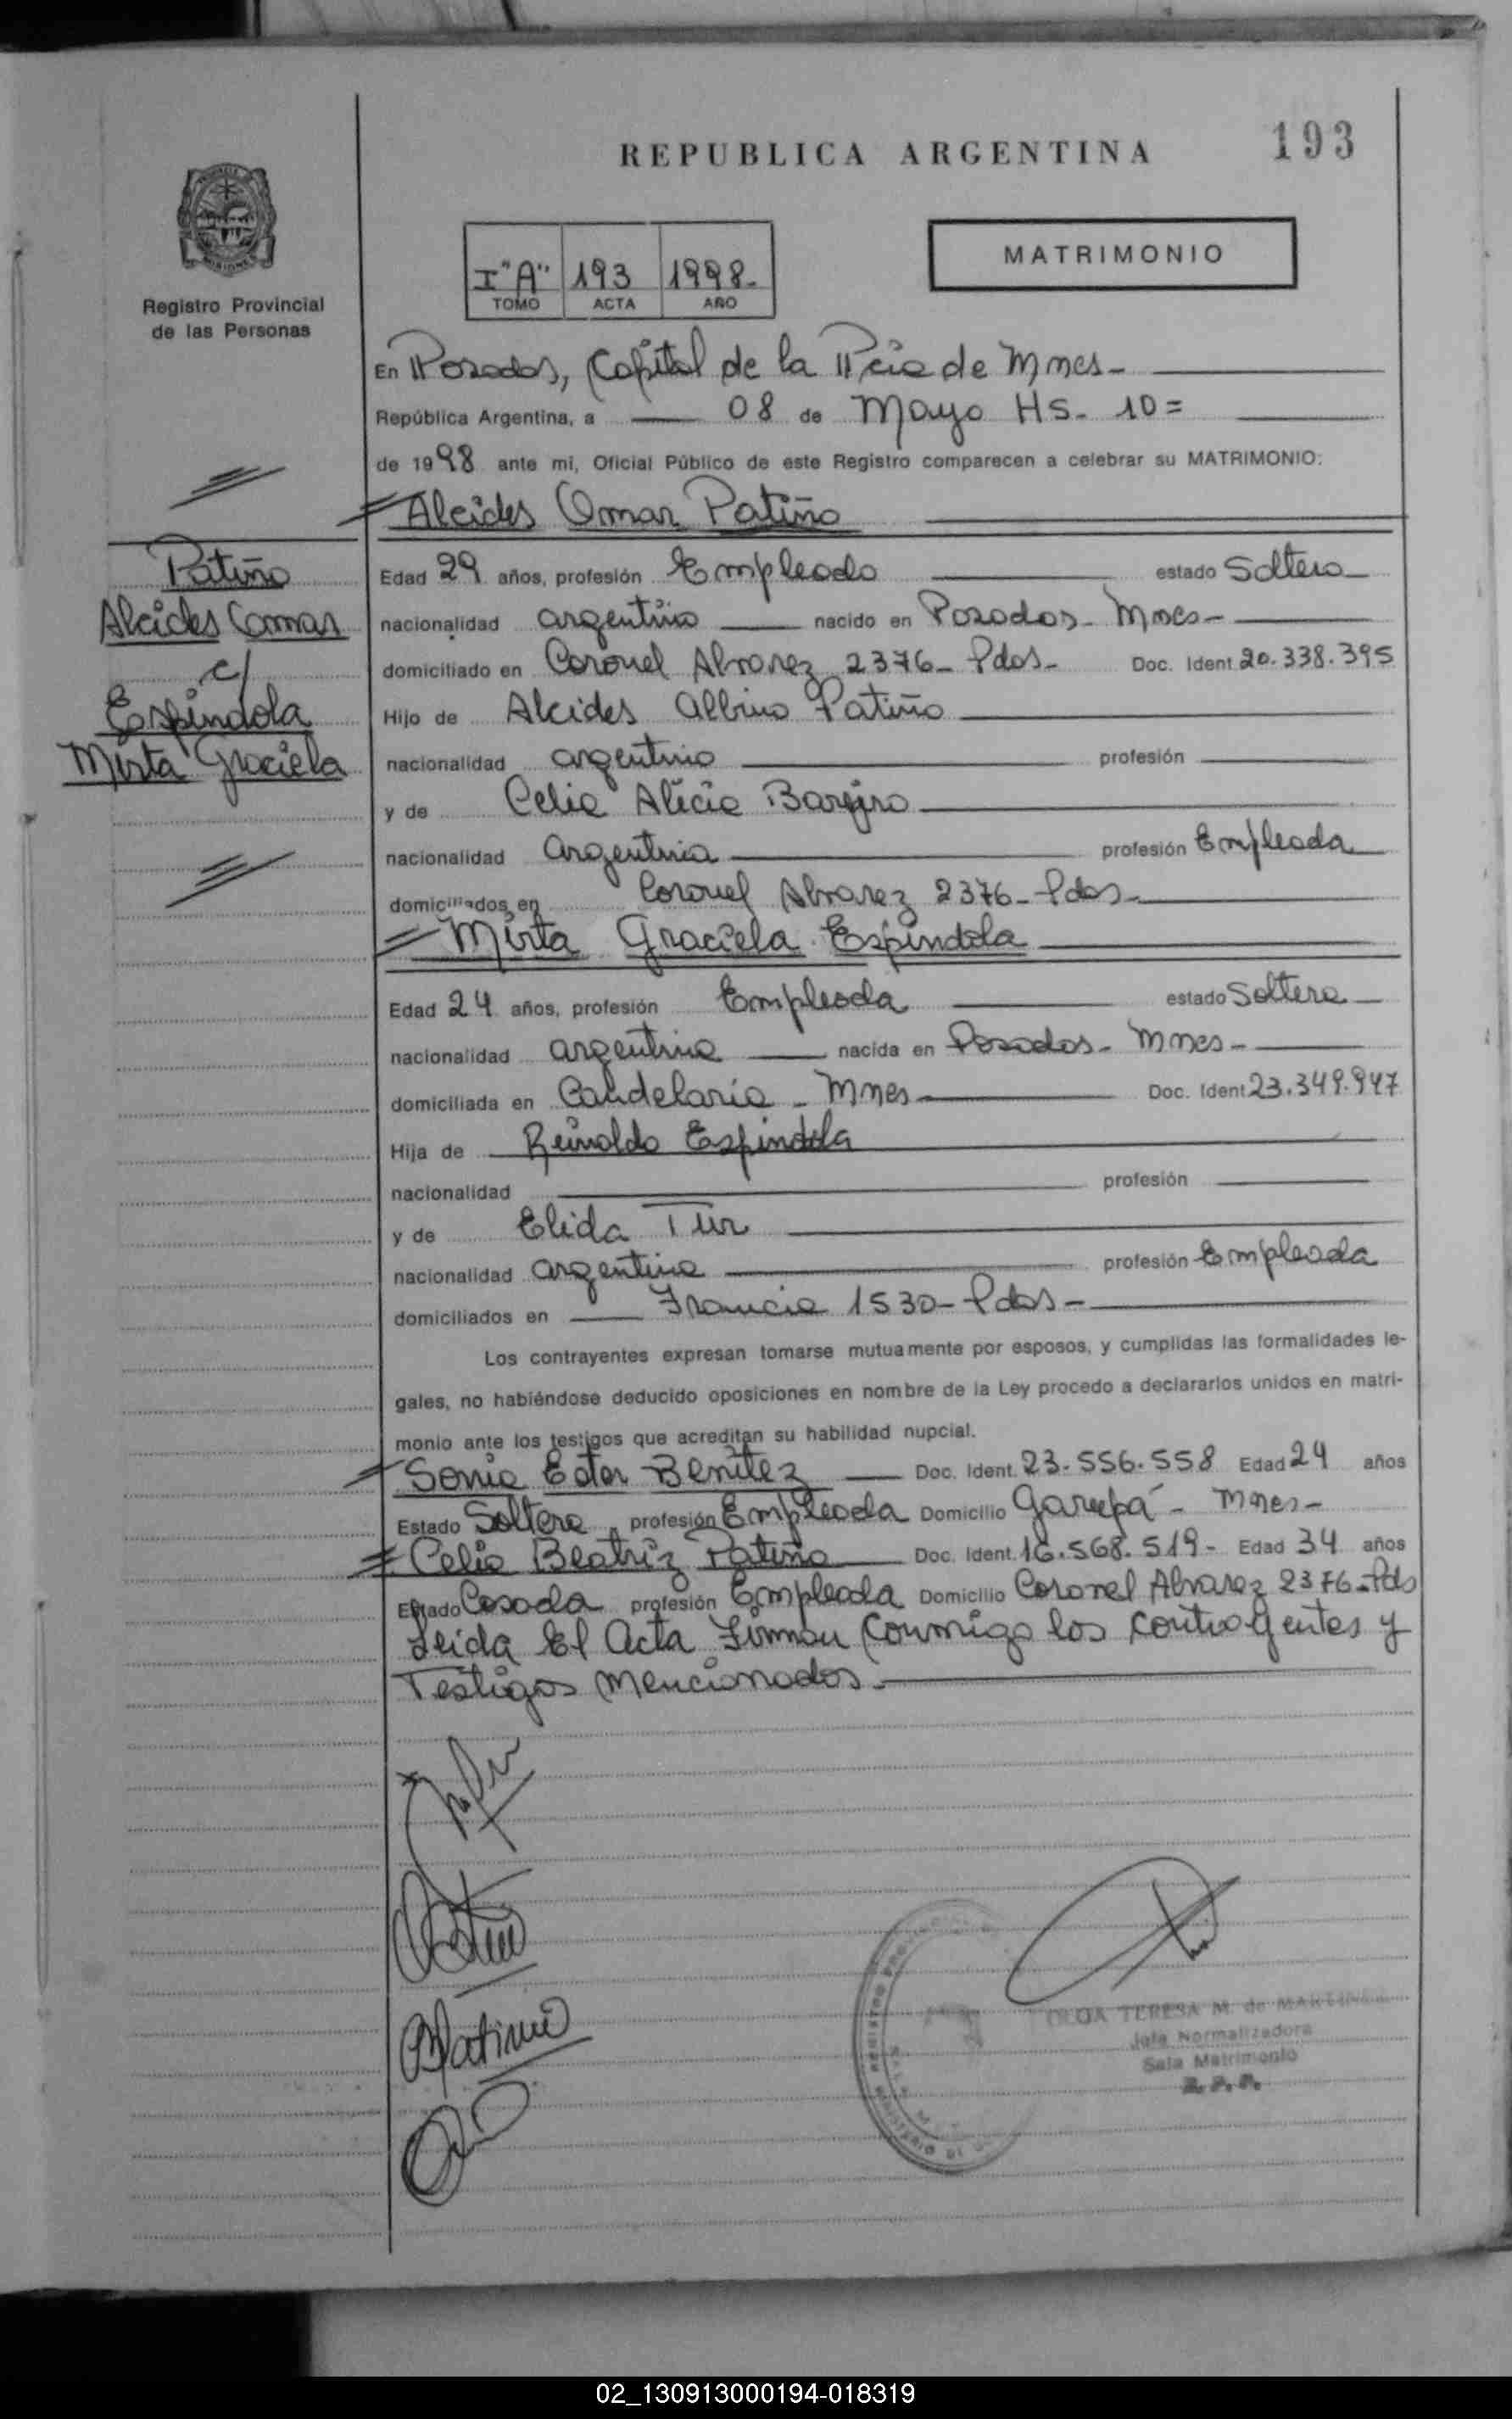 193
REPUBLICA ARGENTINA
MATRIMONIO
I "A" 193 1998-
TOMO ACTA AÑO
Registro Provincial
de las Personas
En Posadas, Capital de la Pcia de Mnes-
República Argentina, a 08 de Mayo Hs- 10=
de 1998 ante mi, Oficial Público de este Registro comparecen a celebrar su MATRIMONIO:
Alcides Omar Patiño
Patiño
Alcides Omar
c/
Espindola
Mirta Graciela
Edad 29 años, profesión Empleado estado Soltero
nacionalidad argentino nacido en Posadas- Mnes-
domiciliado en Coronel Alvarez 2376- Pdas- Doc. Ident. 20.338.395
Hijo de Alcides Albino Patiño
nacionalidad argentino profesión
y de Celia Alicia
nacionalidad argentina profesión Empleada
domiciliados en Coronel Alvarez 2376- Pdas-
Mirta Graciela Espindola
Edad 24 años, profesión Empleada estado Soltera
nacionalidad argentina nacida en Posadas- Mnes-
domiciliada en Candelaria - Mnes Doc. Ident 23.349.947
Hija de Reinaldo Espindola
nacionalidad profesión
y de Elida Tur
nacionalidad argentina profesión Empleada
domiciliados en Francia 1530- Pdas-
Los contrayentes expresan tomarse mutuamente por esposos, y cumplidas las formalidades le-
gales, no habiéndose deducido oposiciones en nombre de la Ley procedo a declararlos unidos en matri-
monio ante los testigos que acreditan su habilidad nupcial.
Sonia Ester Benitez Doc. Ident. 23-556.558 Edad 24 años
Estado Soltera profesión Empleada Domicilio Garupá - Mnes-
Celia Beatriz Patiño Doc. Ident. 16.568.519- Edad 34 años
Estado Casada profesión Empleada Domicilio Coronel Alvarez 2376-Pds
Leida El Acta Firman Conmigo los contrayentes y
Testigos Mencionados-
OLGA TERESA M. de MARTINEZ
Jefa Normalizadora
Sala Matrimonio
R. P. P.
02_130913000194-018319